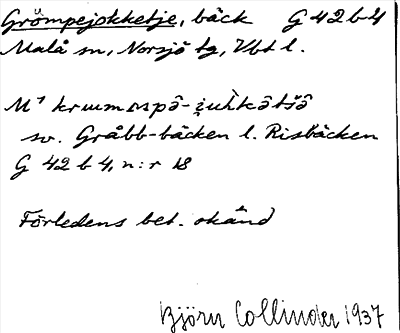 Grömpejokketje, bäck G 42 b 4
Malå sn, Norsjö tg, Vbt l.
M¹
sv. Gråbb-bäcken l. Risbäcken
G 42 b 4, n:r 18
Förledens bet. okänd
Björn Collinder 1937